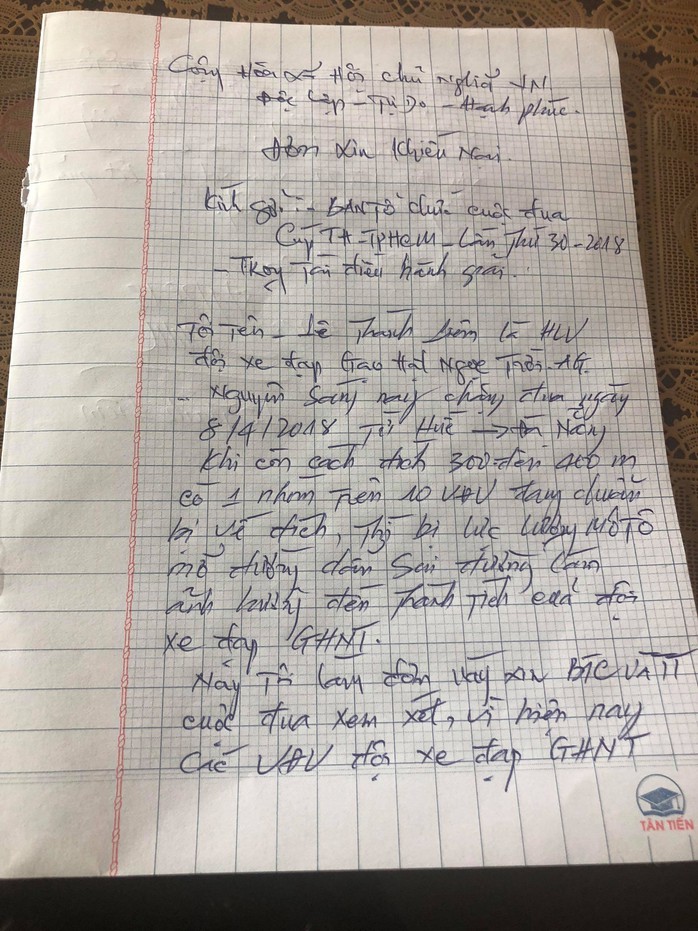 Cộng Hòa Xã Hội chủ nghĩa VN
Độc Lập - Tự Do - Hạnh phúc.
Đơn xin khiếu Nại.
Kính gửi: - BAN Tổ chức cuộc đua
Cúp TH - TPHCM - Lần Thứ 30 - 2018
- Trọng Tài điều hành giải.
Tôi Tên - Lê Thanh là HLV
đội xe đạp Gạo Hạt Ngọc Trời - AG.
- Nguyên sáng nay chặng đua ngày
8/4/2018 Từ Huế → Đà Nẵng
Khi còn cách đích 300 đến 400 m
có 1 nhóm Trên 10 VĐV đang chuẩn
bị về đích, Thì bị lực lượng MÔTÔ
mở đường dẫn Sai đường Làm
ảnh hưởng đến Thành Tích của đội
xe đạp GHNT.
Nay Tôi làm đơn này xin BTC VÀ TT
cuộc đua xem xét, vì hiện nay
Các VĐV đội xe đạp GHNT
TÂN TIẾN